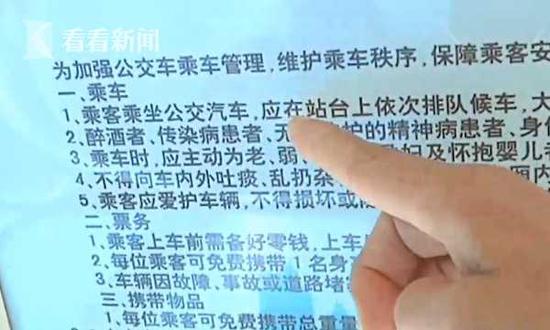 看看新闻
为加强公交车乘车管理,维护乘车秩序,保障乘客安
一、乘车
1、乘客乘坐公交汽车,应在站台上依次排队候车,大
2、醉酒者、传染病患者、无 护的精神病患者、身
3、乘车时,应主动为老、弱、 妇及怀抱婴儿
4、不得向车内外吐痰、乱扔杂
5、乘客应爱护车辆,不得损坏或
二、票务
1、乘客上车前需备好零钱,上车
2、每位乘客可免费携带1名身
3、车辆因故障、事故或道路堵
三、携带物品
1、每位乘客可免费携带总重量